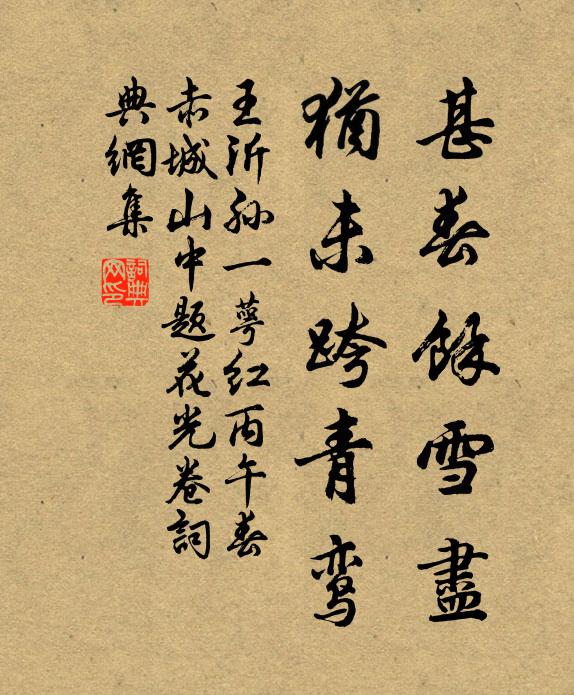 甚春餘雪盡
猶未跨青鸾
王沂孙一萼红丙午春
赤城山中题花光卷詞
典網集
詞典网印